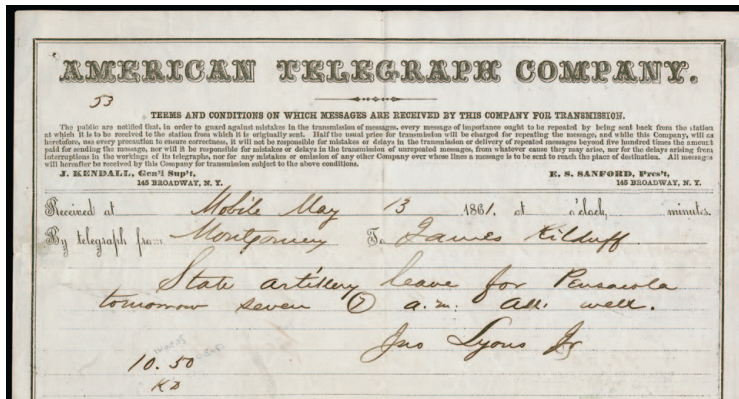 AMERICAN TELEGRAPH COMPANY.
53
TERMS AND CONDITIONS ON WHICH MESSAGES ARE RECEIVED BY THIS COMPANY FOR TRANSMISSION.
The public are notified that, in order to guard against mistakes in the transmission of messages, every message of importance ought to be repeated by being sent back from the station
at which it is to be received to the station from which it is originally sent. Half the usual price for transmission will be charged for repeating the message, and while this Company, will as
heretofore, use every precaution to ensure correctness, it will not be responsible for mistakes or delays in the transmission or delivery of repeated messages beyond five hundred times the amount
paid for sending the message, nor will it be responsible for mistakes or delays in the transmission of unrepeated messages, from whatever cause they may arise, nor for the delays arising from
interruptions in the workings of its telegraphs, nor for any mistakes or omission of any other Company over whose lines a message is to be sent to reach the place of destination. All messages
will hereafter be received by this Company for transmission subject to the above conditions.
J. KENDALL, Gen'l Sup't, E. S. SANFORD, Pres't,
145 BROADWAY, N. Y. 145 BROADWAY, N. Y.
Received at Mobile May 13 1861. at o'clock, minutes.
By telegraph from Montgomery To James Kilduff
State artillery leave for Pensacola
tomorrow seven (7) a.m. All well.
Jno Lyons Jr
10.50